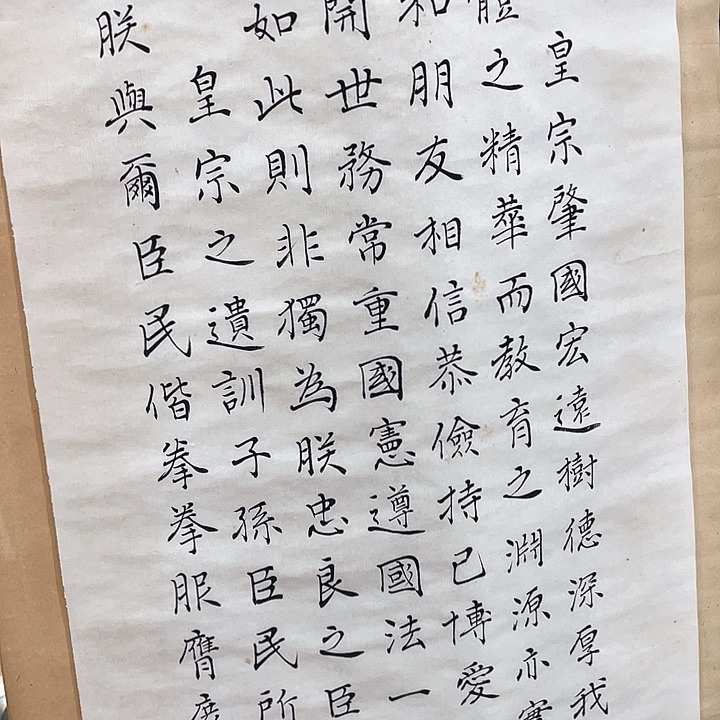 皇宗肇國宏遠樹德深厚我
體之精華而教育之淵源亦實
和朋友相信恭儉持己博愛
開世務常重國憲遵國法一
如此則非獨為朕忠良之臣
皇宗之遺訓子孫臣民所
朕與爾臣民偕拳拳服膺